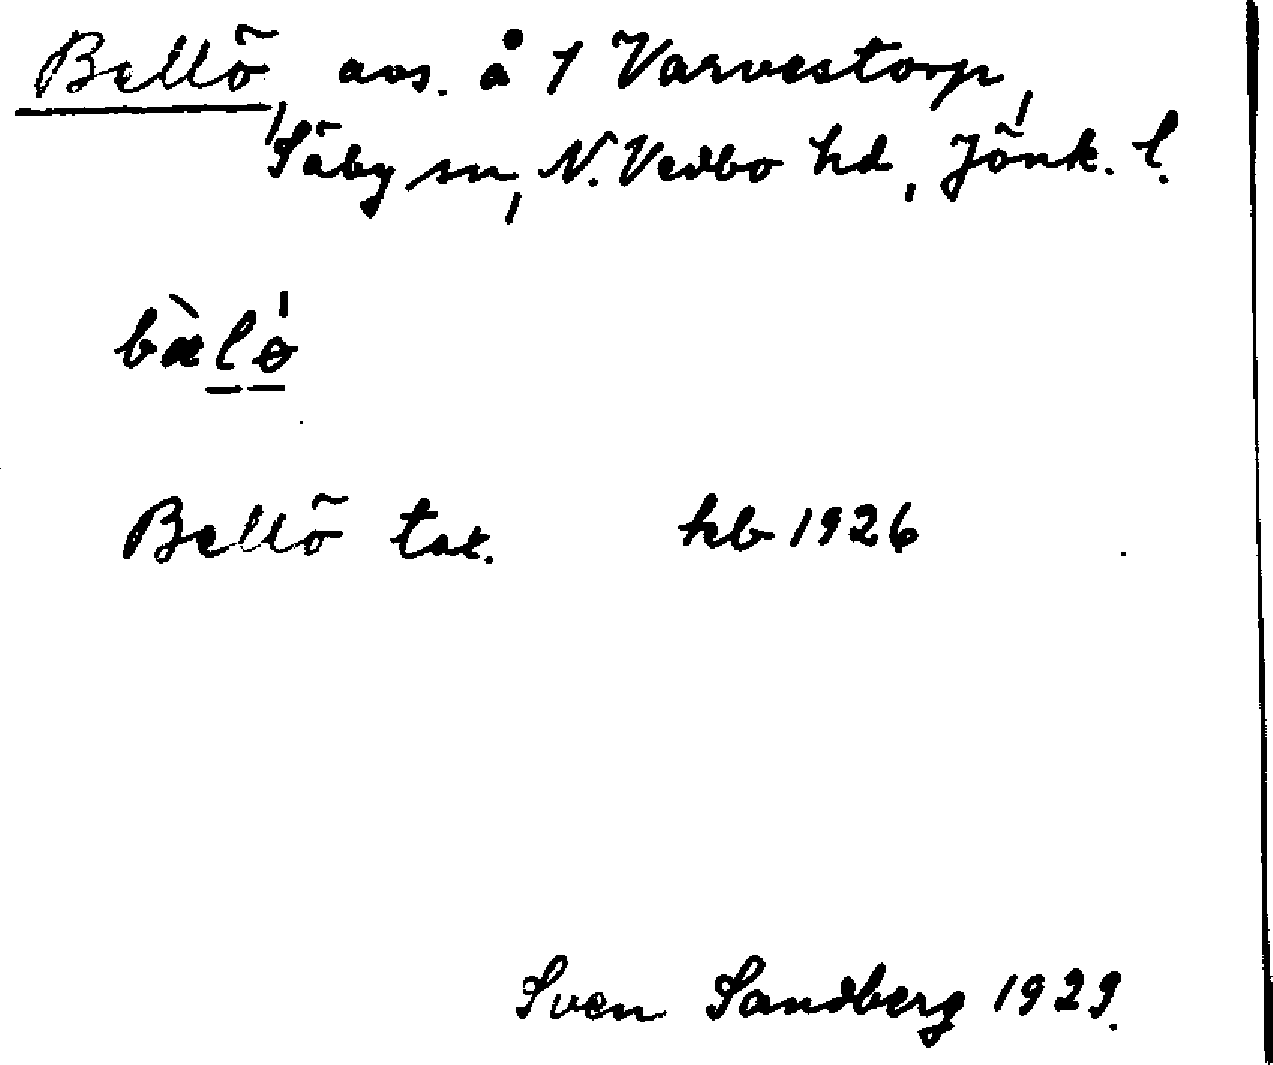 Bellö, avs. å 1 Varvestorp,
Säby sn, N. Vedbo hd, Jönk. l.
bælö
Bellö tax. kb 1926
Sven Sandberg 1929.